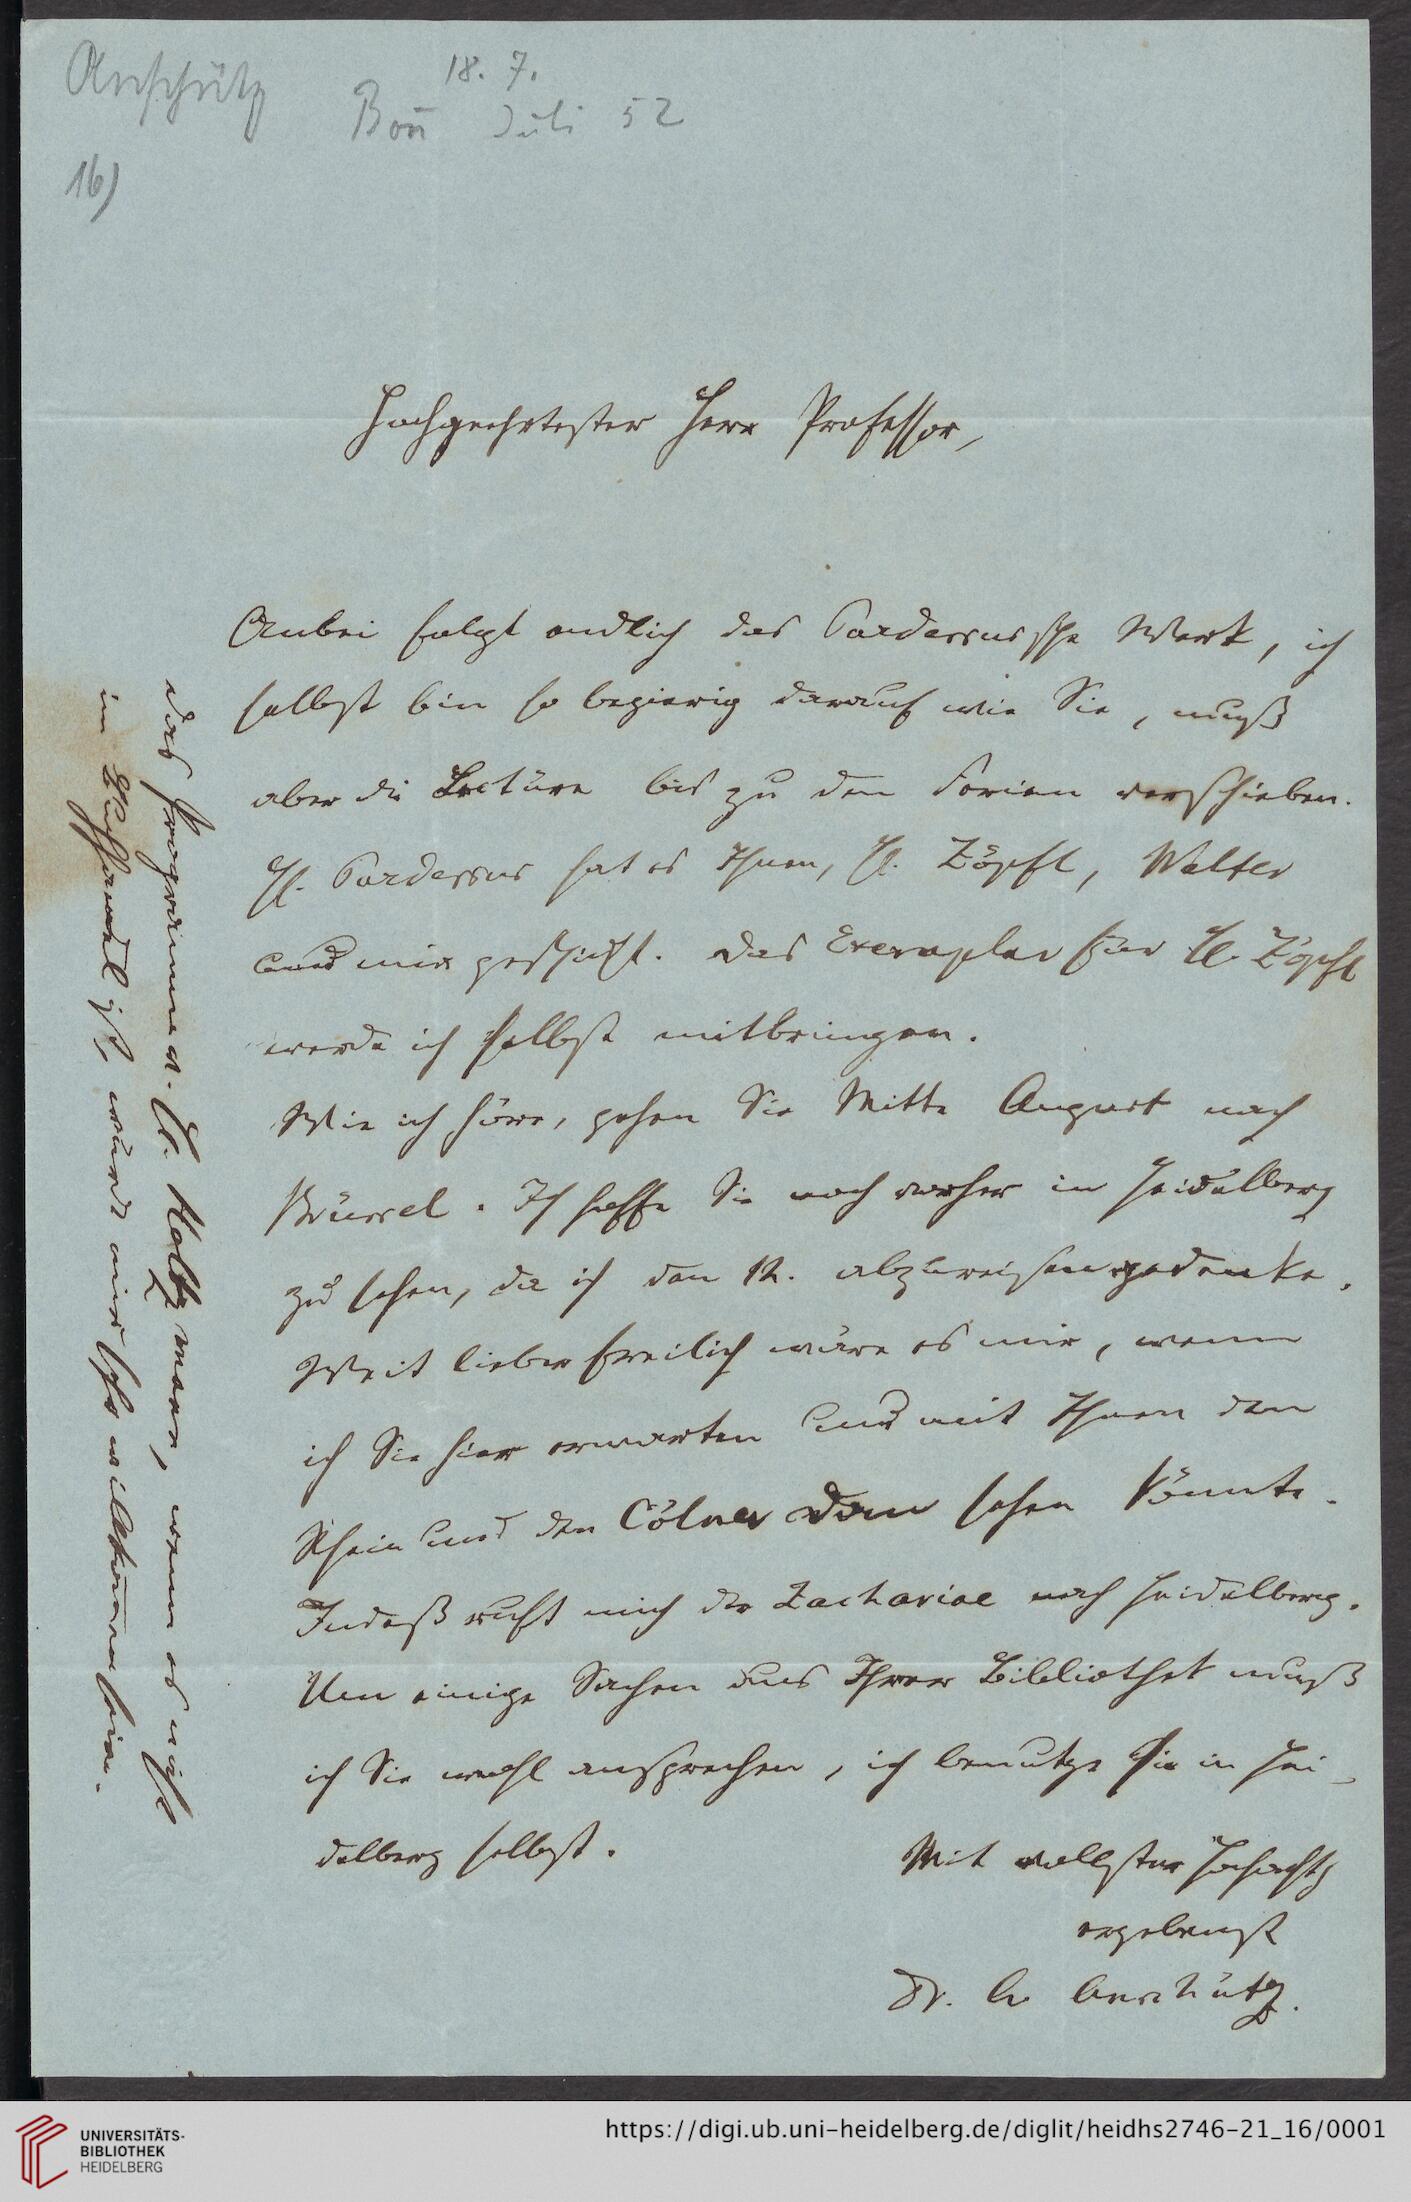 Anschütz
18. 7.
Boñ Juli 52
16)
Hochgeehrtester Herr Professor,
Anbei folgt endlich das Pardessussche Werk, ich
selbst bin so begierig darauf wie Sie, muß
aber die Lectüre bis zu den Ferien verschieben.
H. Pardessus hat es Ihnen, H. Zöpfl, Walter
und mir geschickt. Das Exemplar für H. Zöpfl
werde ich selbst mitbringen.
Wie ich höre, gehen Sie Mitte August nach
Brüssel. Ich hoffe Sie noch vorher in Heidelberg
zu sehen, da ich den 12. abzureisen gedenke.
Weit lieber freilich wäre es mir, wenn
ich Sie hier erwarten und mit Ihnen den
Rhein und den Cölner Dom sehen könnte.
Indeß ruft mich der Zachariae nach Heidelberg.
Um einige Sachen aus Ihrer Bibliothek muß
ich Sie wohl ansprechen, ich benutze sie in Hei-
delberg selbst.
Mit vollster Hochachtg
ergebenst
Dr. A Anschütz.
Das Programm v. H. Holtzmann, wenn es nicht
im Buchhandel ist, würde mir sehr willkom̄en sein.
UNIVERSITÄTS-
BIBLIOTHEK
HEIDELBERG
https://digi.ub.uni-heidelberg.de/diglit/heidhs2746-21_16/0001